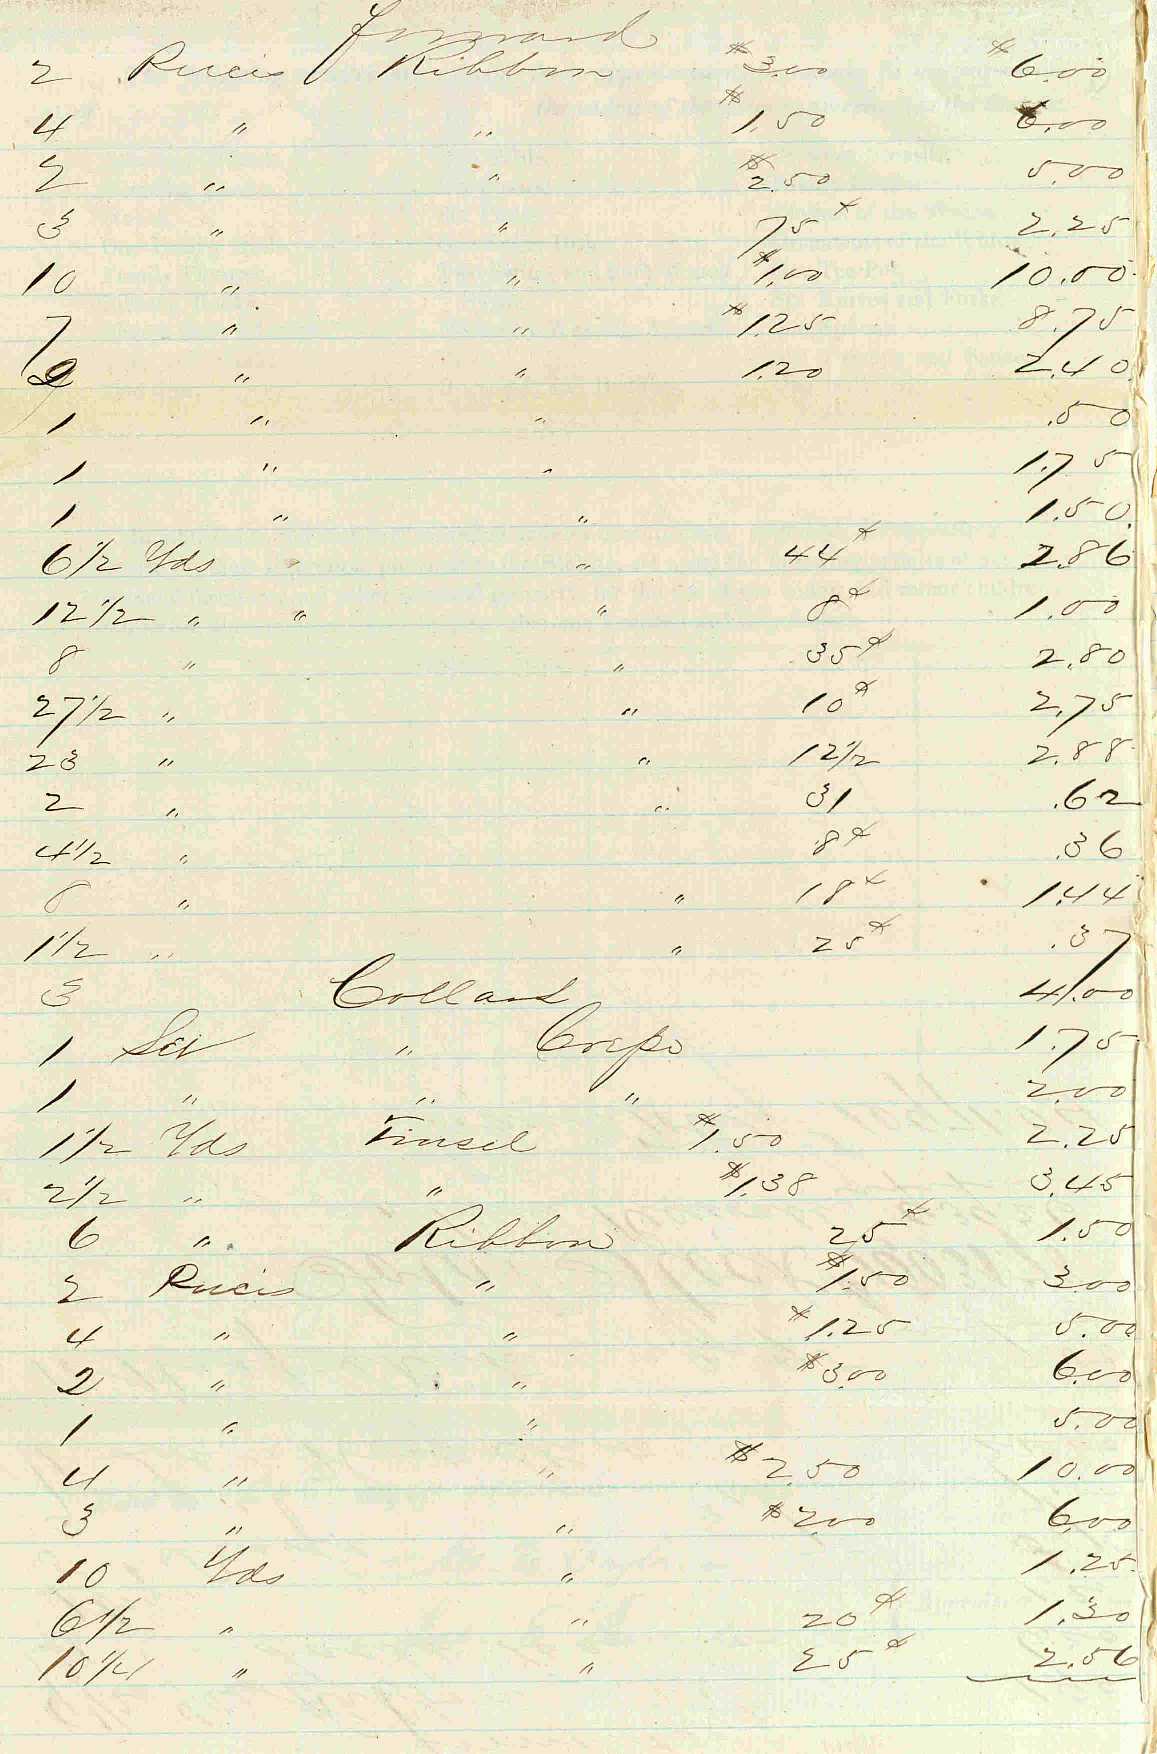 Forward
2 Pieces Ribbon $3.00 $6.00
4 " " $1.50 6.00
2 " " $2.50 5.00
3 " " 75¢ 2.25
10 " " $1.00 10.00
7 " " $1.25 8.75
2 " " 1.20 2.40
1 " " .50
1 " " 1.75
1 " " 1.50
6 1/2 Yds " 44¢ 2.86
12 1/2 " " " 8¢ 1.00
8 " " 35¢ 2.80
27 1/2 " " 10¢ 2.75
23 " " 12 1/2 2.88
2 " " 31 .62
4 1/2 " 8¢ .36
8 " " 18¢ 1.44
1 1/2 " " 25¢ .37
3 Collars 4.00
1 Set " Crepe 1.75
1 " " " 2.00
1 1/2 Yds Tinsel $1.50 2.25
2 1/2 " " $1.38 3.45
6 " Ribbon 25¢ 1.50
2 Pieces " $1.50 3.00
4 " " $1.25 5.00
2 " " $3.00 6.00
1 " " 5.00
4 " " $2.50 10.00
3 " " $2.00 6.00
10 Yds " 1.25
6 1/2 " " 20¢ 1.30
10 1/4 " " 25¢ 2.56